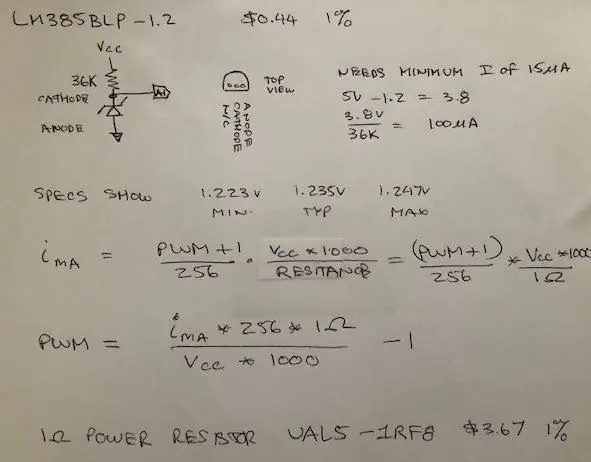 LM385BLP-1.2 $0.44 1%
Vcc
36K
A1
CATHODE
ANODE
TOP VIEW
ANODE
CATHODE
N/C
NEEDS MINIMUM I of 15µA
5V - 1.2 = 3.8
3.8V / 36K = 100µA
SPECS SHOW 1.223V 1.235V 1.247V
MIN. TYP MAX
imA = PWM+1 / 256 · Vcc * 1000 / RESITANCE = (PWM+1) / 256 * Vcc * 1000 / 1Ω
PWM = imA * 256 * 1Ω / Vcc * 1000 - 1
1Ω POWER RESISTOR UAL5-1RF8 $3.67 1%